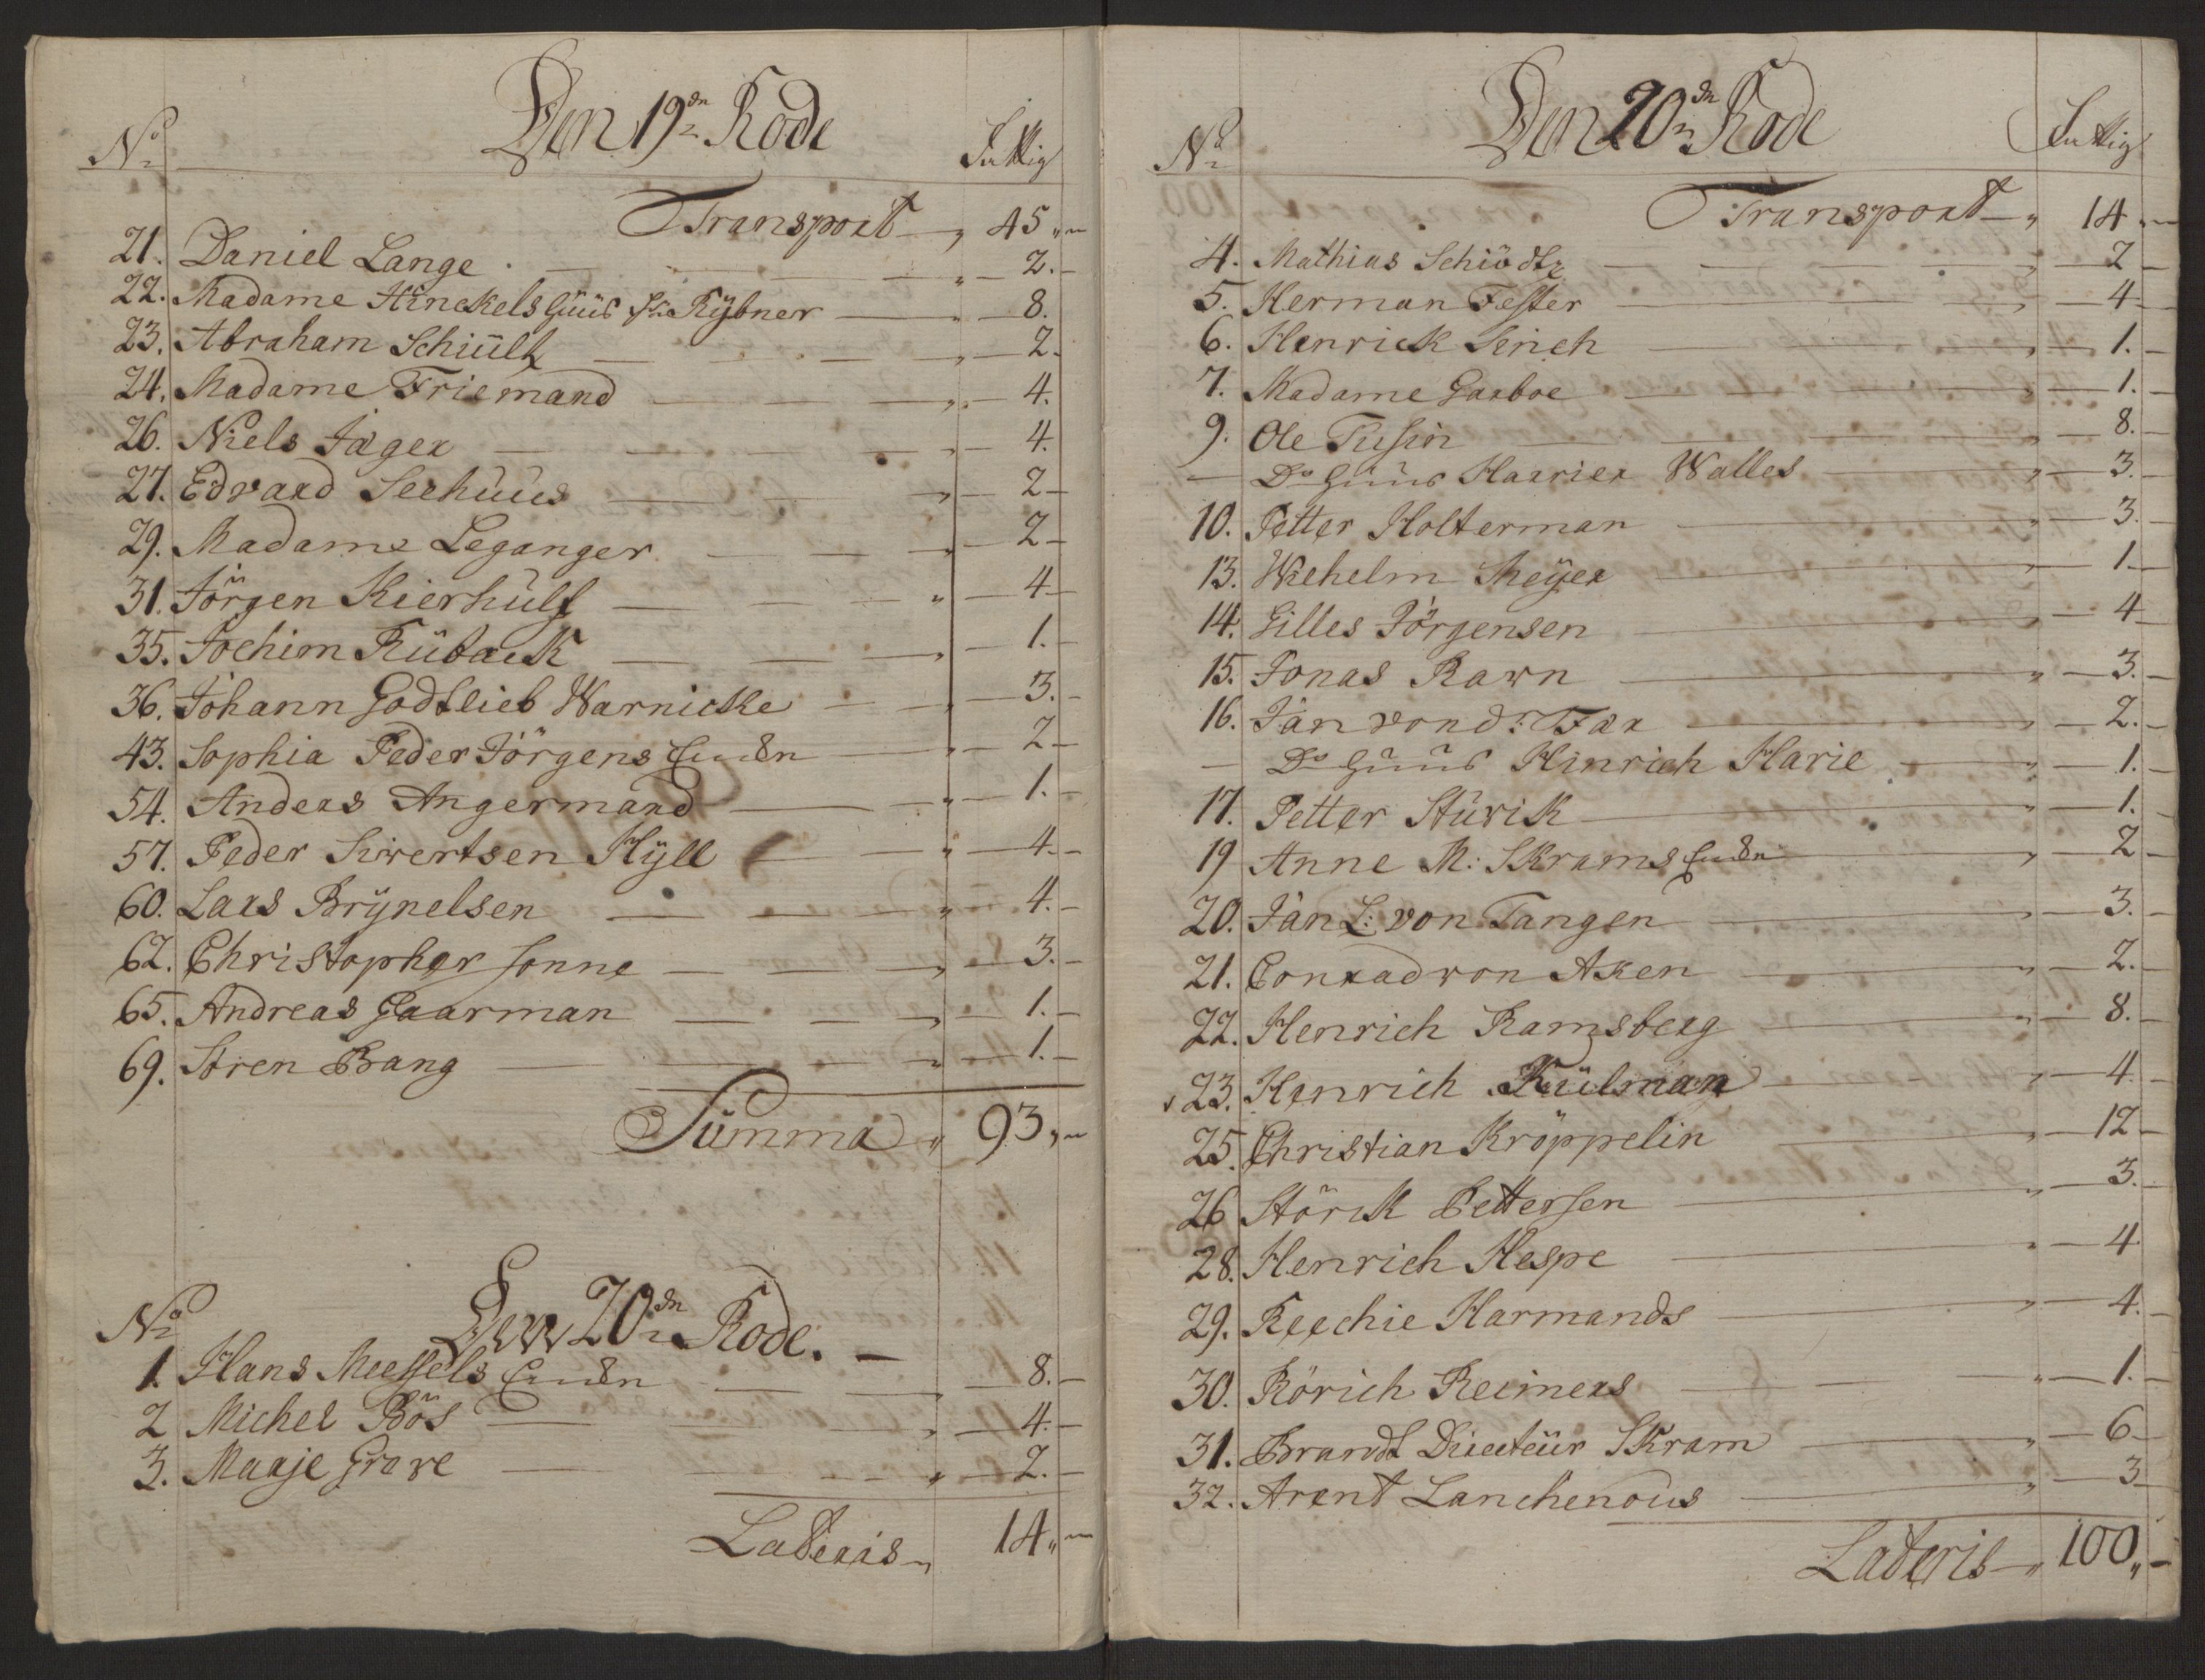 Den 19de Rode
No
Transport 45
21. Daniel Lange 2.
22. Madame Hinckels Huus Fr: Rÿbner 8.
23. Abraham Schiült 2.
24. Madame Friemand 4.
26. Niels Jäger 4.
27. Edvard Seehuus 2
29. Madame Leganger 2
31. Jörgen Kierhulf 4
35. Jochim Rüback 1.
36. Johann Godtlieb Warnicke 3.
43. Sophia Peder Jörgens Enckn 2
54. Anders Angermand 1.
57. Peder Siwertsen Hÿll 4.
60. Lars Brÿnelsen 4.
62. Christopher Sonne 3.
65. Andreas Gaarman 1.
69. Sören Bang 1.
Summa 93
No Den 20de Rode.
1. Hans Meessels Enckn 8.
2 Michel Bös 4.
3. Marje Grove 2.
Lateris 14
Den 20de Rode
No
Transport 14
4. Mathias Schiödtz 2
5. Herman Fester 4
6. Henrick Sinch 1.
7. Madame Garboe 1.
9. Ole Tusin 8.
— Do Huus Harrier Walles 3.
10. Petter Holterman 3.
13. Wiehelm Meÿer 1.
14. Gilles Jörgensen 4
15. Jonas Rawn 3.
16. Jan von d: Fær 2.
— Do Huus Hinrich Harie 1.
17. Petter Sturik 1.
19 Anne M: Skrams Enckn 2
20. Jan L: von Tangen 3.
21. Conrad von Aken 2.
22. Henrich Ramsberg 8.
23. Henrich Külman 4
25. Christian Kröppelin 12
26 Störik Pettersen 3.
28. Henrich Hespe 4
29. Reechie Harmands 4.
30. Rörich Reimers 1.
31. Brandt Directeür Skram 6
32. Arent Lanchenous 3
Lateris 100